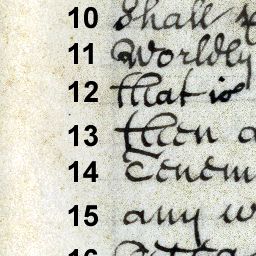 10 Shall
11 Worldly
12 that is
13 then
14 Tenem
15 any w
16